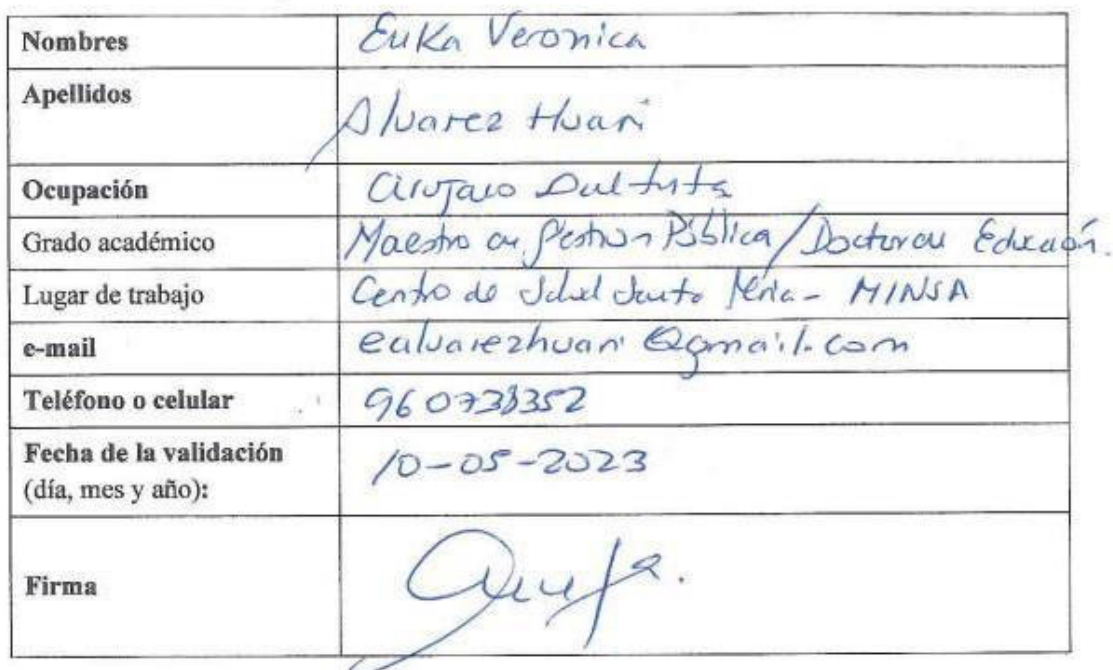 Nombres Erika Veronica
Apellidos Alvarez Huari
Ocupación Cirujano Dentista
Grado académico Maestro en Gestion Pública / Doctor en Educación.
Lugar de trabajo Centro de Salud Santa María - MINSA
e-mail ealvarezhuari@gmail.com
Teléfono o celular 960738352
Fecha de la validación 10-05-2023
(día, mes y año):
Firma